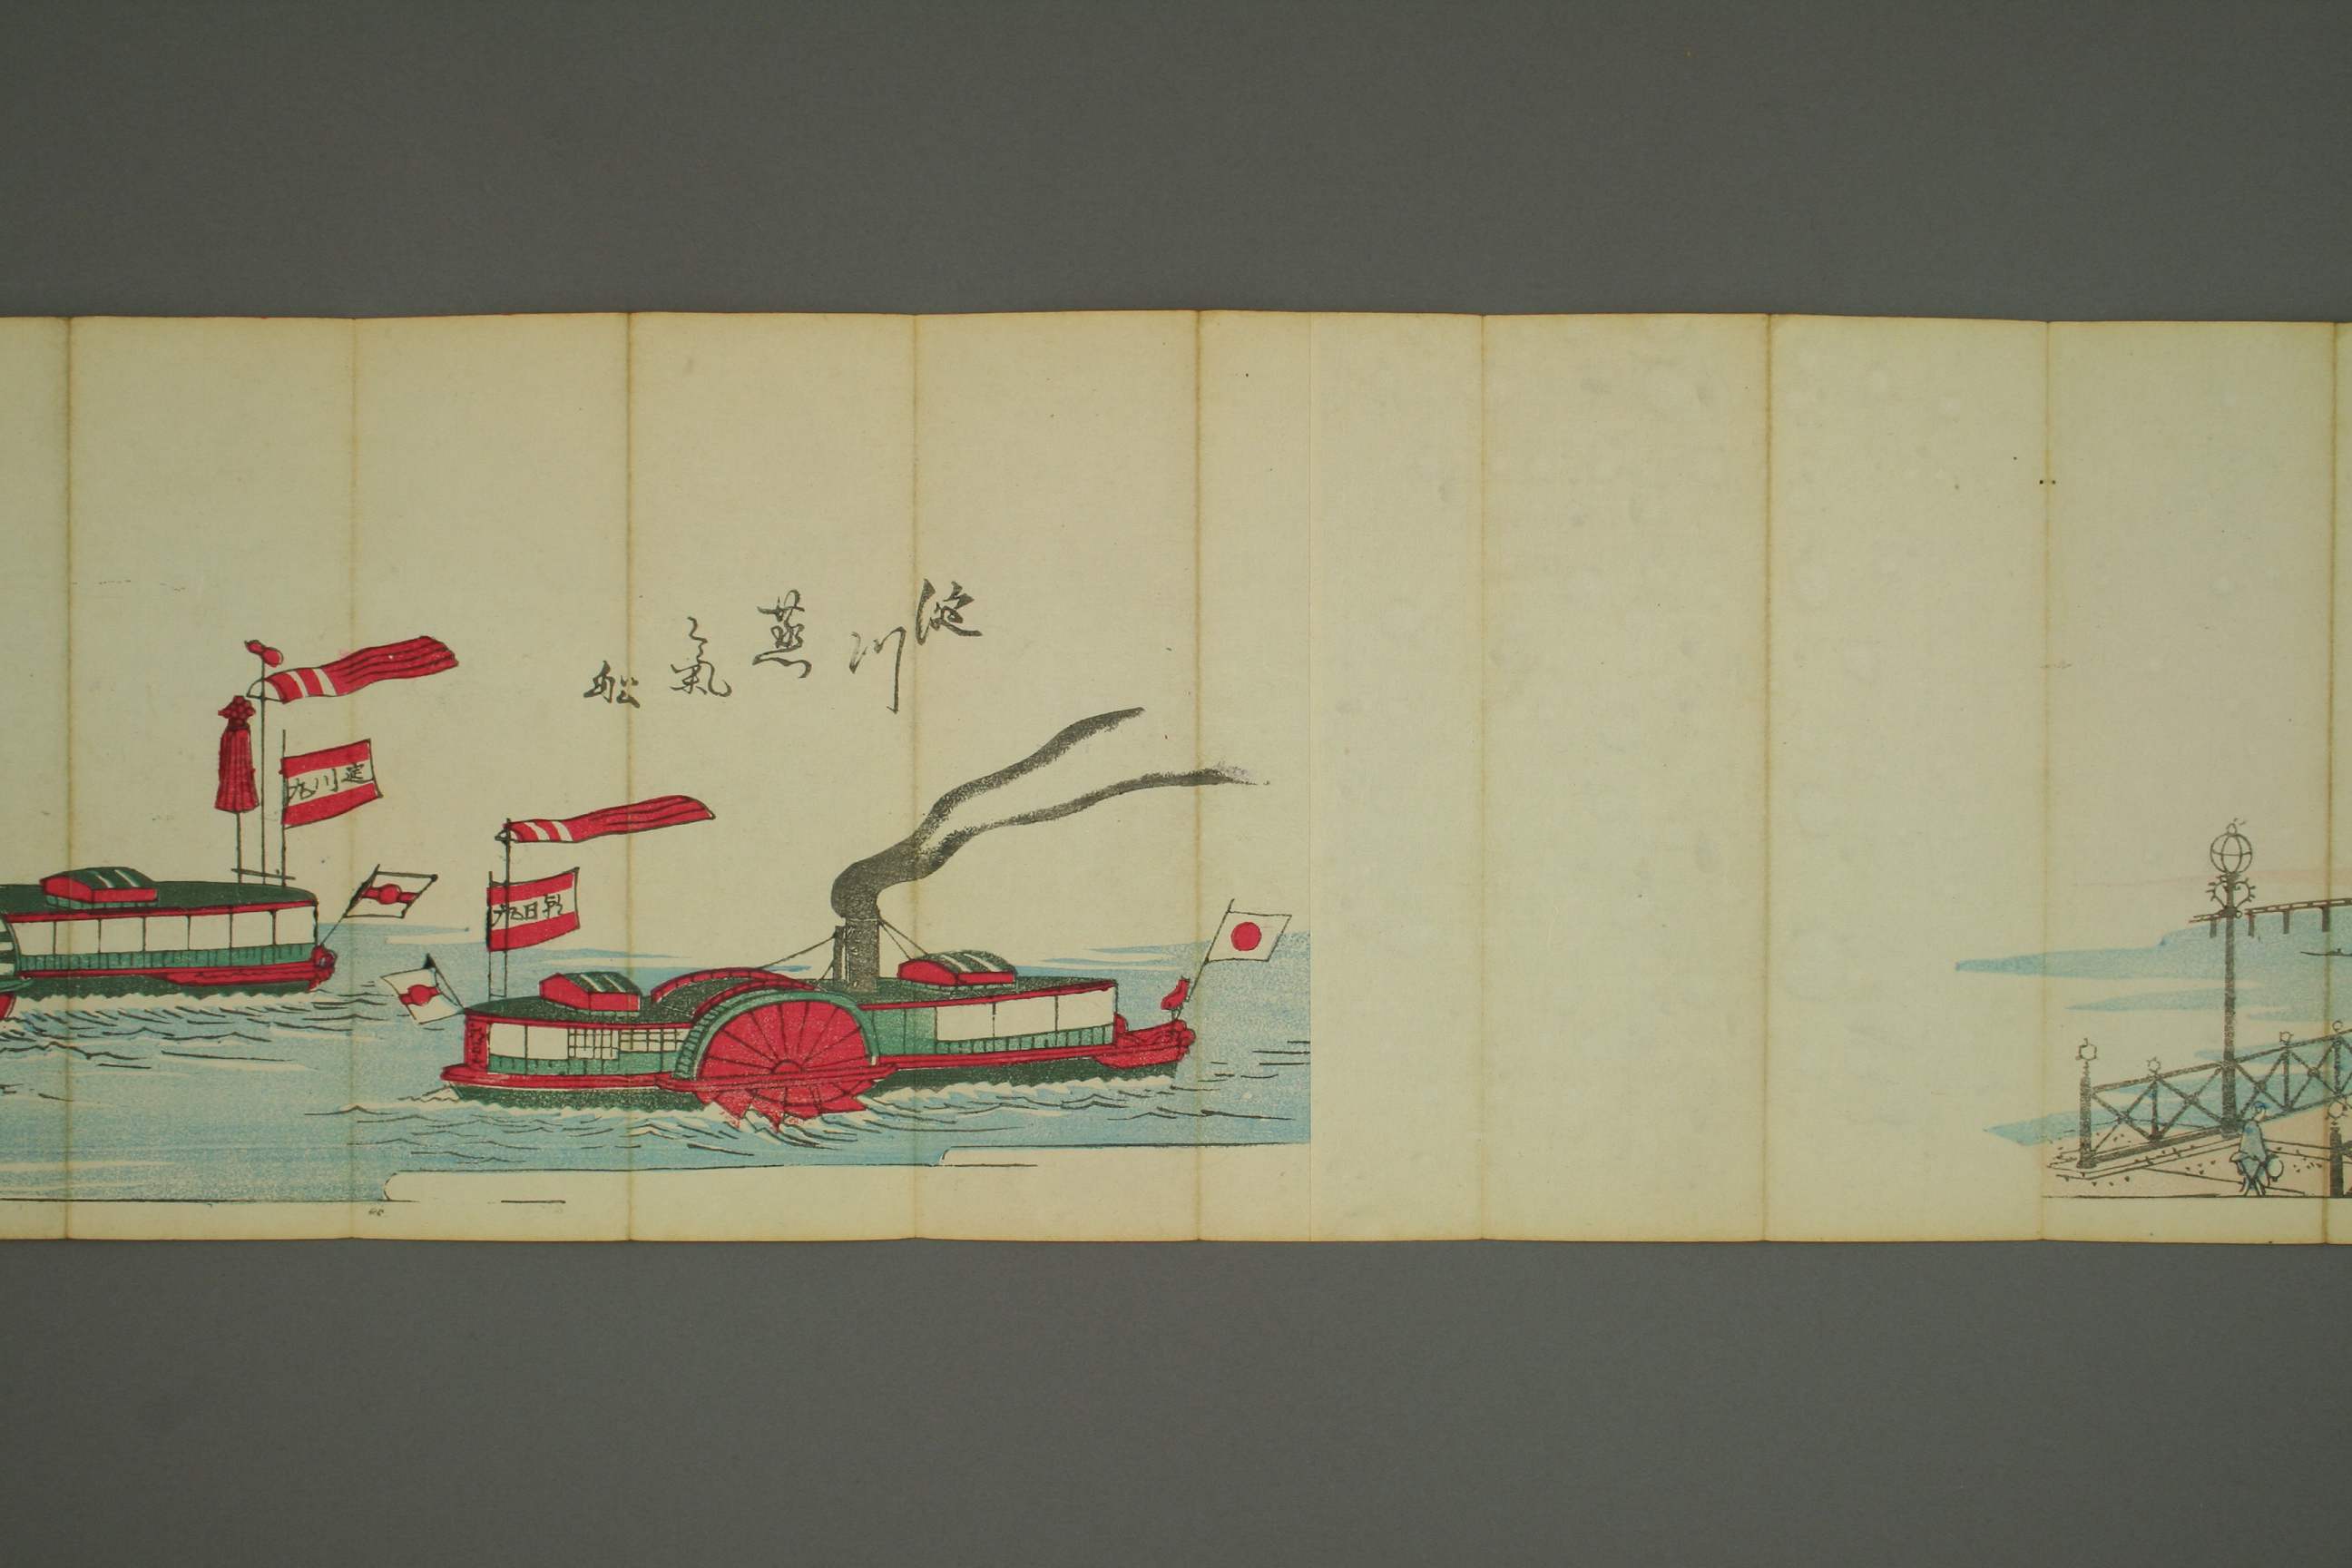 淀川蒸氣船
朝日丸
淀川丸